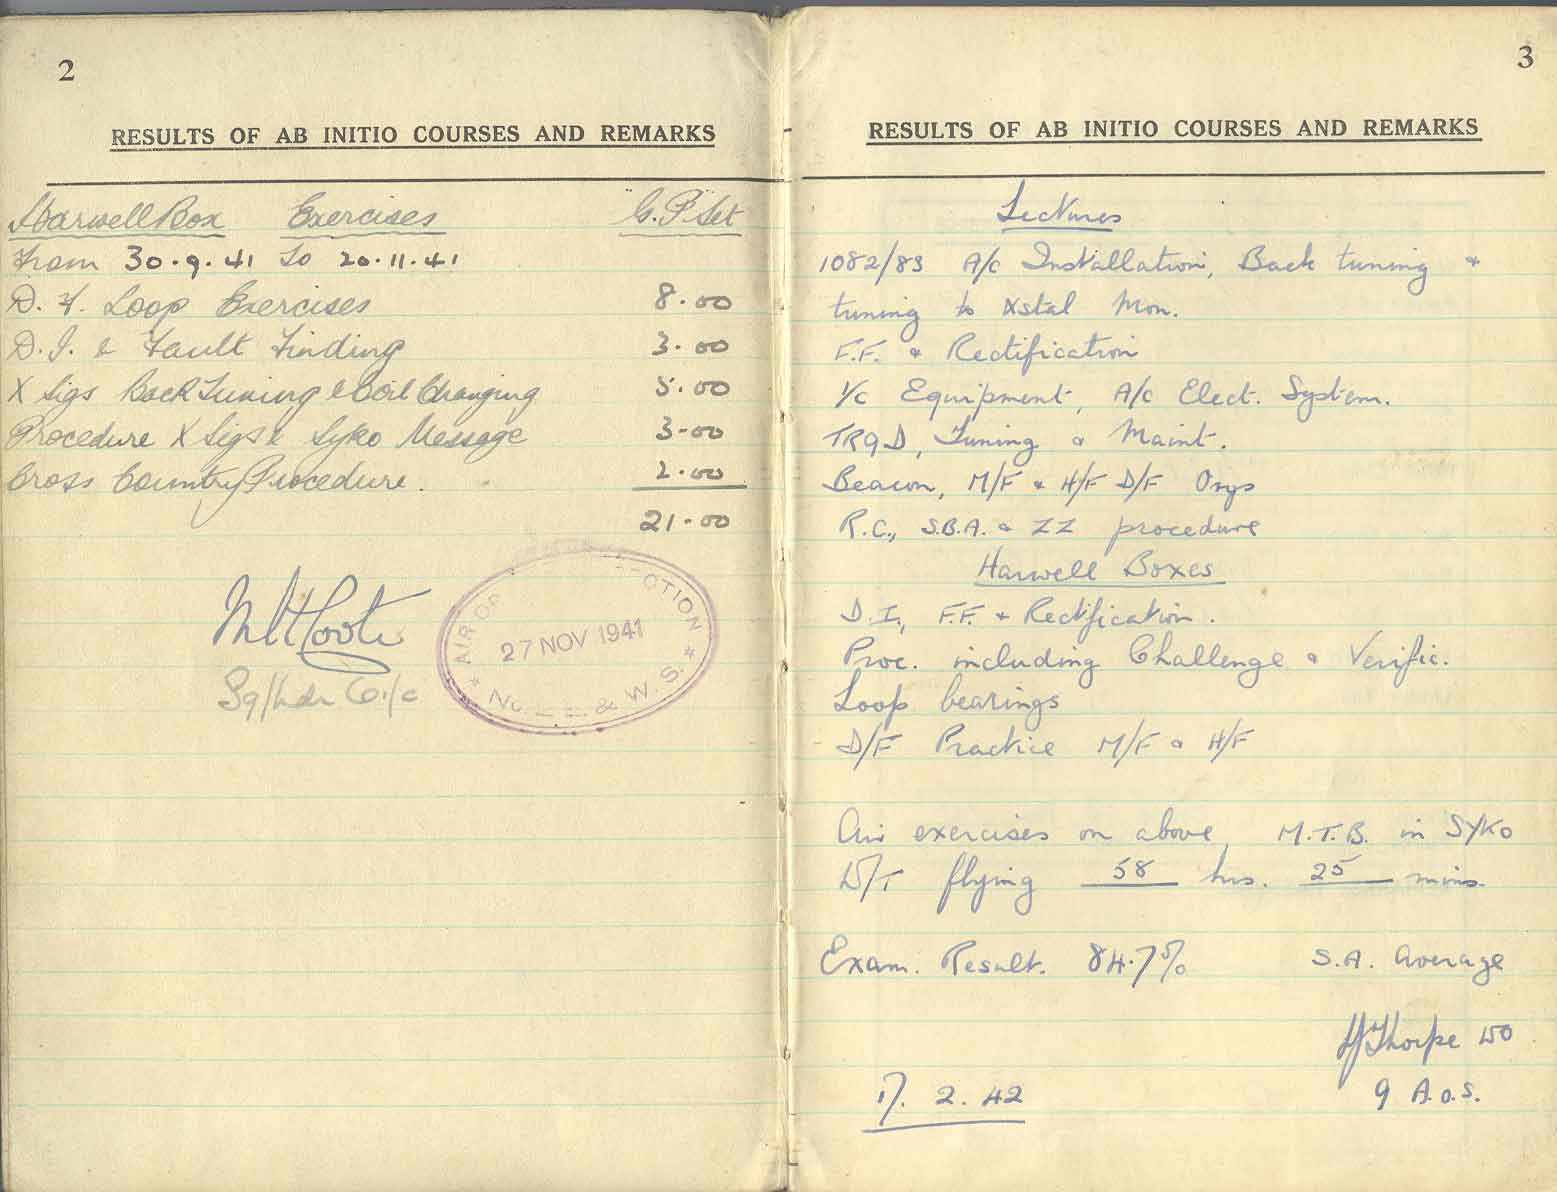 2
RESULTS OF AB INITIO COURSES AND REMARKS
Harwell Box Exercises "G.P" Set
From 30.9.41 to 20.11.41
D.F. Loop Exercises 8.00
D.I. & Fault Finding 3.00
X Sigs Back Tuning & Coil Changing 5.00
Procedure X Sigs & Syko Message 3-00
Cross Country Procedure. 2.00
21.00
Sq/Ldr
AIR OP CTION
27 NOV 1941
No. & W. S.
3
RESULTS OF AB INITIO COURSES AND REMARKS
Lectures
1082/83 A/C Installation, Back tuning &
tuning to Xstal Mon.
F.F. & Rectification
I/C Equipment, A/C Elect. System.
TR9D, Tuning & Maint.
Beacon, M/F & H/F D/F Orgs
R.C., S.B.A. & ZZ procedure
Harwell Boxes
D.I., F.F. & Rectification.
Proc. including Challenge & Verific.
Loop bearings
D/F Practice M/F & H/F
Air exercises on above, M.T.B. in SYKO
W/T flying 58 hrs. 25 mins.
Exam. Result. 84.7% S.A. Average
Thorpe WO
17. 2. 42 9 A.O.S.